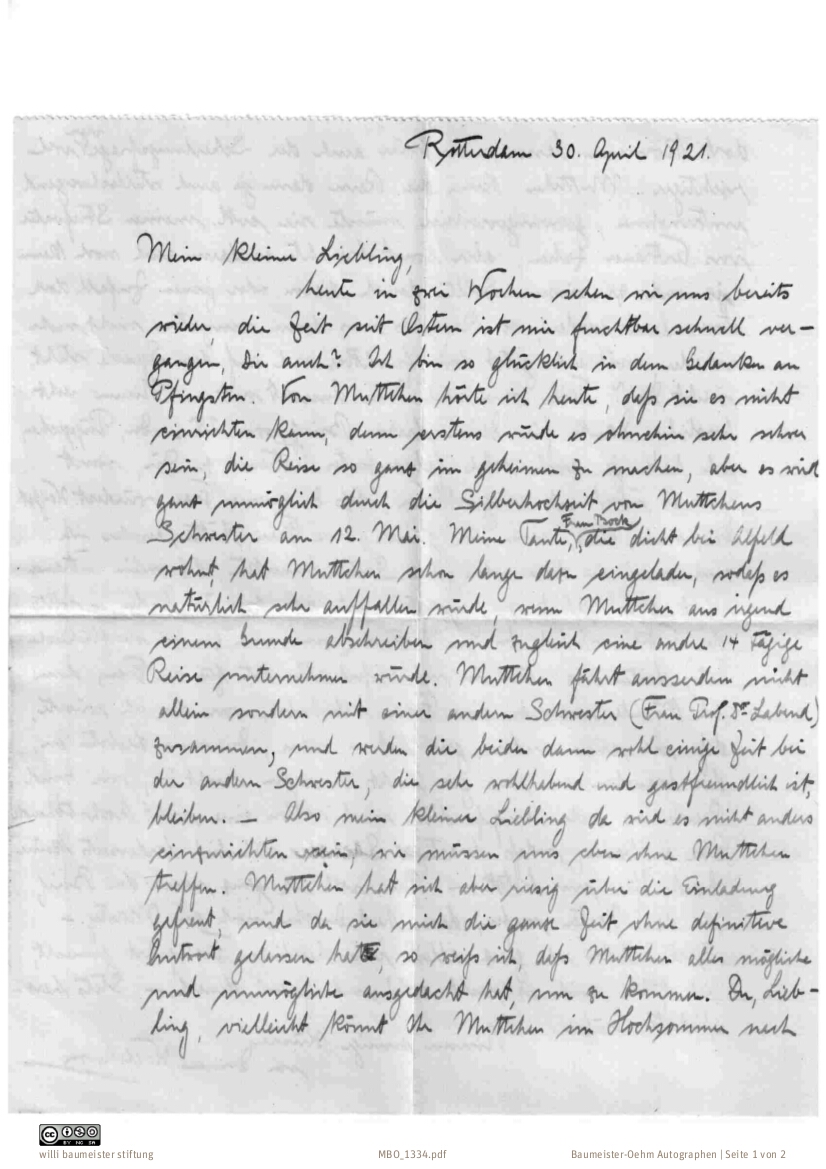 Rotterdam 30. April 1921.
Mein kleiner Liebling,
heute in zwei Wochen sehen wir uns bereits
wieder, die Zeit seit Ostern ist mir furchtbar schnell ver-
gangen, Dir auch? Ich bin so glücklich in dem Gedanken an
Pfingsten. Von Muttchen hörte ich heute, daß sie es nicht
einrichten kann, denn erstens würde es ohnehin sehr schwer
sein, die Reise so ganz im geheimen zu machen, aber es wird
ganz unmöglich durch die Silberhochzeit von Muttchens
Schwester am 12. Mai. Meine Tante, Frau Bock, die dicht bei Alfeld
wohnt, hat Muttchen schon lange dazu eingeladen, sodaß es
natürlich sehr auffallen würde, wenn Muttchen aus irgend
einem Grunde abschreiben und zugleich eine andre 14 tägige
Reise unternehmen würde. Muttchen fährt ausserdem nicht
allein sondern mit einer andern Schwester (Frau Prof. Dr. Labend)
zusammen, und werden die beiden dann wohl einige Zeit bei
der andern Schwester, die sehr wohlhabend und gastfreundlich ist,
bleiben. – Also mein kleiner Liebling da wird es nicht anders
einzurichten sein, wir müssen uns eben ohne Muttchen
treffen. Muttchen hat sich aber riesig über die Einladung
gefreut, und da sie mich die ganze Zeit ohne definitive
Antwort gelassen hat, so weiß ich, daß Muttchen alles mögliche
und unmögliche ausgedacht hat, um zu kommen. Du, Lieb-
ling, vielleicht könnt Ihr Muttchen im Hochsommer nach
willi baumeister stiftung
MBO_1334.pdf
Baumeister-Oehm Autographen | Seite 1 von 2